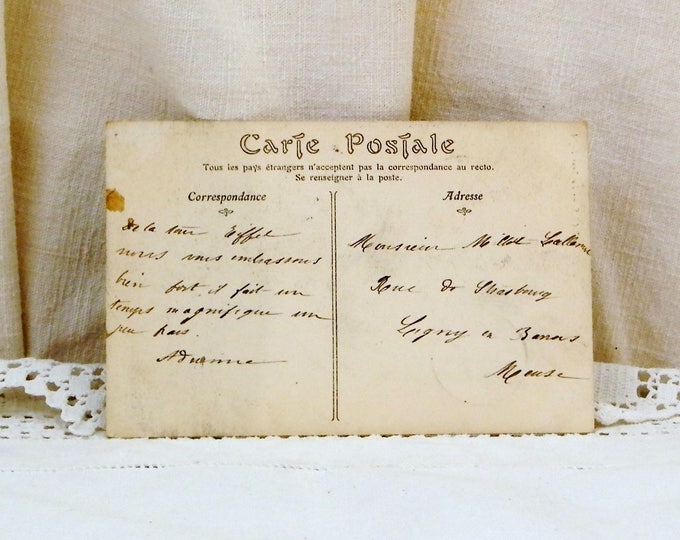 Carte Postale
Tous les pays étrangers n'acceptent pas la correspondance au recto.
Se renseigner à la poste.
Correspondance
De la tour Eiffel
nous vous embrassons
bien fort il fait un
temps magnifique un
peu frais.
Adrienne
Adresse
Monsieur Millot
Rue de Strasbourg
Ligny en Barrois
Meuse